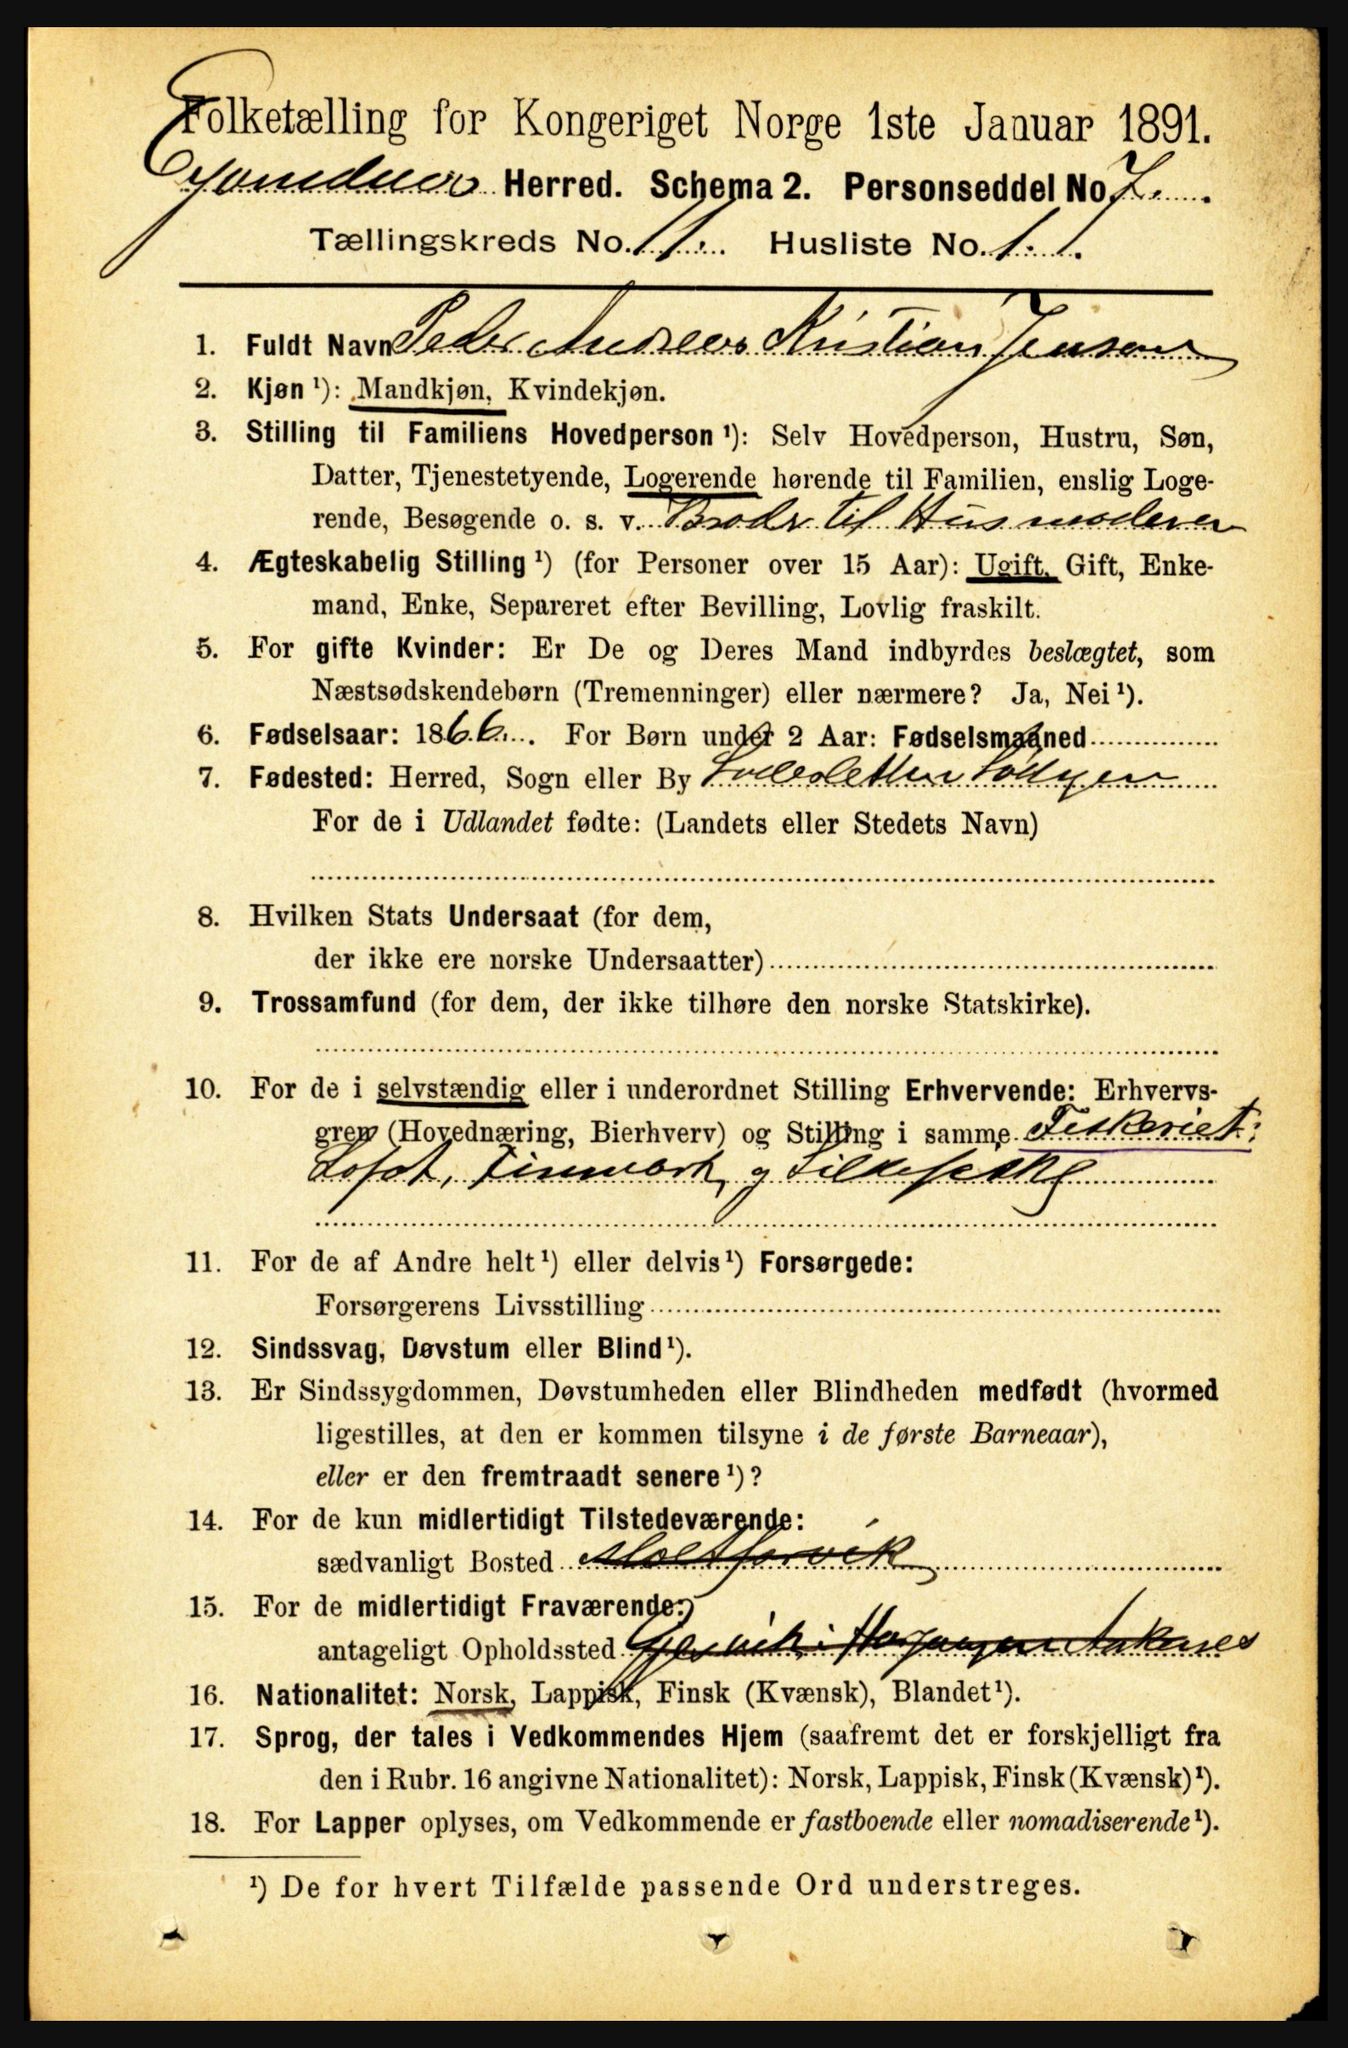 Folketælling for Kongeriget Norge 1ste Januar 1891.
Herred. Schema 2. Personseddel No 7.
Tællingskreds No. 11. Husliste No. 1.
1. Fuldt Navn Peder Andreas Kristian Jensen
2. Kjøn ¹): Mandkjøn, Kvindekjøn.
3. Stilling til Familiens Hovedperson ¹): Selv Hovedperson, Hustru, Søn,
Datter, Tjenestetyende, Logerende hørende til Familien, enslig Loge-
rende, Besøgende o. s. v. Broder til Husmoderen
4. Ægteskabelig Stilling ¹) (for Personer over 15 Aar): Ugift, Gift, Enke-
mand, Enke, Separeret efter Bevilling, Lovlig fraskilt.
5. For gifte Kvinder: Er De og Deres Mand indbyrdes beslægtet, som
Næstsødskendebørn (Tremenninger) eller nærmere? Ja, Nei ¹).
6. Fødselsaar: 1866. For Børn under 2 Aar: Fødselsmaaned
7. Fødested: Herred, Sogn eller By
For de i Udlandet fødte: (Landets eller Stedets Navn)
8. Hvilken Stats Undersaat (for dem,
der ikke ere norske Undersaatter)
9. Trossamfund (for dem, der ikke tilhøre den norske Statskirke).
10. For de i selvstændig eller i underordnet Stilling Erhvervende: Erhvervs-
gren (Hovednæring, Bierhverv) og Stilling i samme Fiskeriet:
Lofot, Finmark, og Sildefiske
11. For de af Andre helt ¹) eller delvis ¹) Forsørgede:
Forsørgerens Livsstilling
12. Sindssvag, Døvstum eller Blind ¹).
13. Er Sindssygdommen, Døvstumheden eller Blindheden medfødt (hvormed
ligestilles, at den er kommen tilsyne i de første Barneaar),
eller er den fremtraadt senere ¹)?
14. For de kun midlertidigt Tilstedeværende:
sædvanligt Bosted
15. For de midlertidigt Fraværende:
antageligt Opholdssted
16. Nationalitet: Norsk, Lappisk, Finsk (Kvænsk), Blandet ¹).
17. Sprog, der tales i Vedkommendes Hjem (saafremt det er forskjelligt fra
den i Rubr. 16 angivne Nationalitet): Norsk, Lappisk, Finsk (Kvænsk) ¹).
18. For Lapper oplyses, om Vedkommende er fastboende eller nomadiserende ¹).
¹) De for hvert Tilfælde passende Ord understreges.